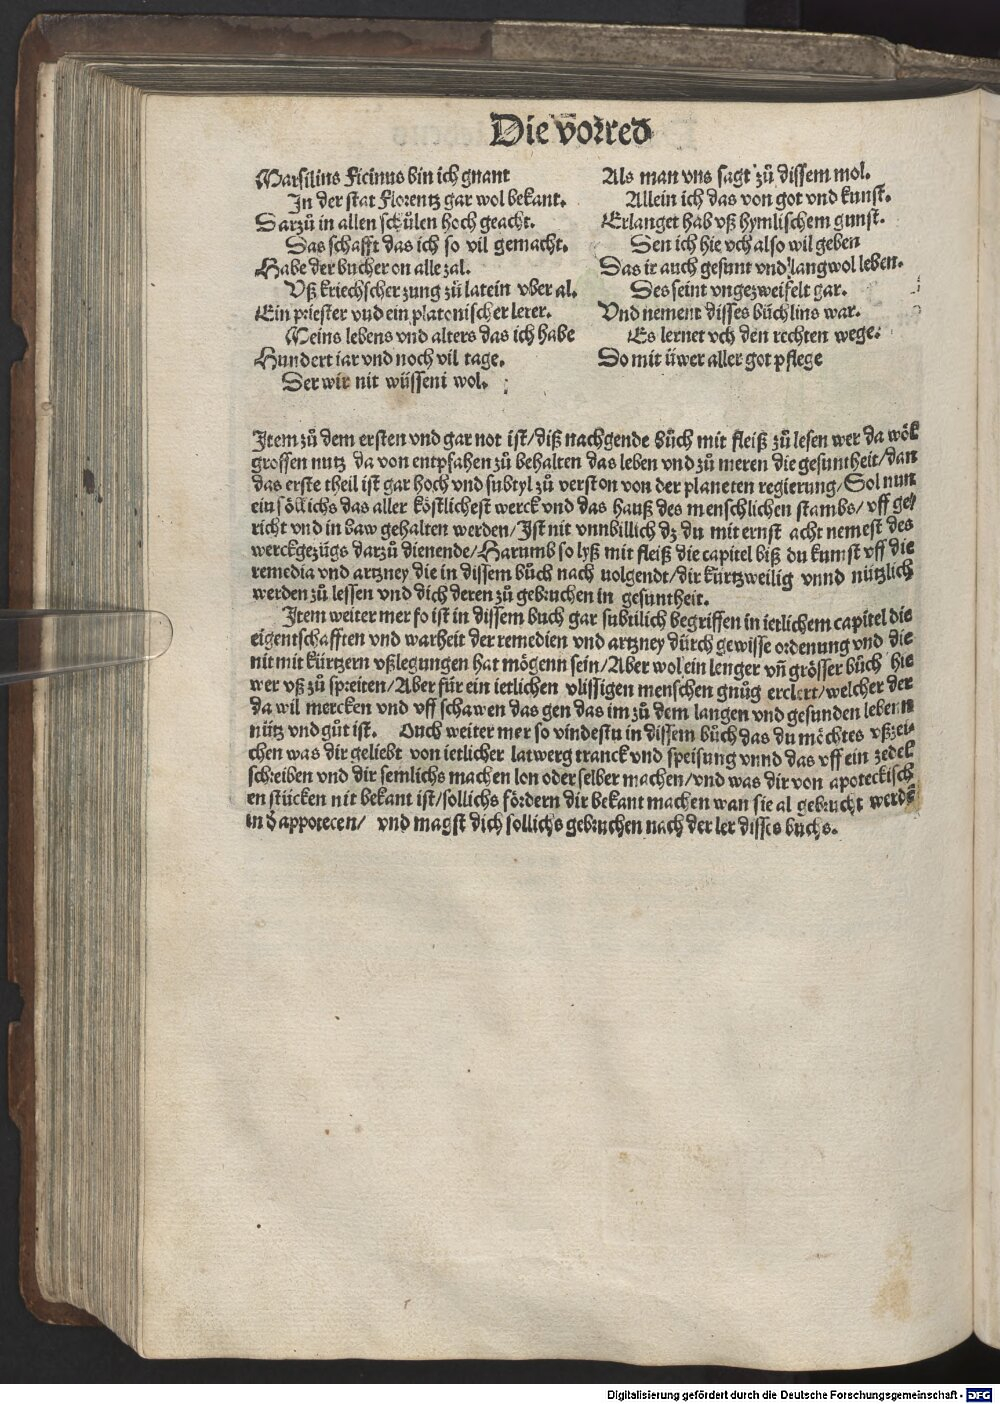 Die vorred
Marsilius Ficinus bin ich gnant
In der stat Florentz gar wol bekant.
Darzů in allen schůlen hoch geacht.
Das schafft das ich so vil gemacht.
Habe der bucher on alle zal.
Vß kriechscher zung zů latein vber al.
Ein priester vnd ein platonischer lerer.
Meins lebens vnd alters das ich habe
Hundert iar vnd noch vil tage.
Der wir nit wüsseni wol.
Als man vns sagt zů dissem mol.
Allein ich das von got vnd kunst.
Erlanget hab vß hymlischem gunst.
Den ich hie vch also wil geben
Das ir auch gesunt vnd langwol leben.
Des seint vngezweifelt gar.
Vnd nement disses büchlins war.
Es lernet vch den rechten wege.
Do mit üwer aller got pflege
Item zů dem ersten vnd gar not ist/diß nachgende Bůch mit fleiß zů lesen wer da wöl
grossen nutz da von entpfahen zů behalten das leben vnd zů meren die gesuntheit/dan
das erste theil ist gar hoch vnd subtyl zů verston von der planeten regierung/Sol nun
ein söllichs das aller köstlichest werck vnd das hauß des menschlichen stambs/vff ge/
richt vnd in baw gehalten werden/Ist nit vnnbillich dz du mit ernst acht nemest des
werckgezügs darzů dienende/Harumb so lyß mit fleiß die capitel biß du kumst vff die
remedia vnd artzney die in dissem bůch nach uolgendt/dir kürtzweilig vnnd nützlich
werden zů lessen vnd dich deren zů gebruchen in gesuntheit.
Item weiter mer so ist in dissem buch gar subtilich begriffen in ietlichem capitel die
eigentschafften vnd warheit der remedien vnd artzney dürch gewisse ordenung vnd die
nit mit kürtzern vßlegungen hat mögenn sein/Aber wol ein lenger vn̄ grösser bůch hie
wer vß zů spreiten/Aber für ein ietlichen vlissigen menschen gnůg erclert/welcher der
da wil mercken vnd vff schawen das gen das im zů dem langen vnd gesunden lebenn
nütz vnd gůt ist. Ouch weiter mer so vindestu in dissem bůch das du möchtes vßzei-
chen was dir geliebt von ietlicher latwerg tranck vnd speisung vnnd das vff ein zedel
schreiben vnd dir semlichs machen lon oder selber machen/vnd was dir von apoteckisch
en stücken nit bekant ist/sollichs fördern dir bekant machen wan sie al gebrucht werdē
in d̄ appotecen/ vnd magst dich sollichs gebruchen nach der ler disses buchs.
Digitalisierung gefördert durch die Deutsche Forschungsgemeinschaft - DFG